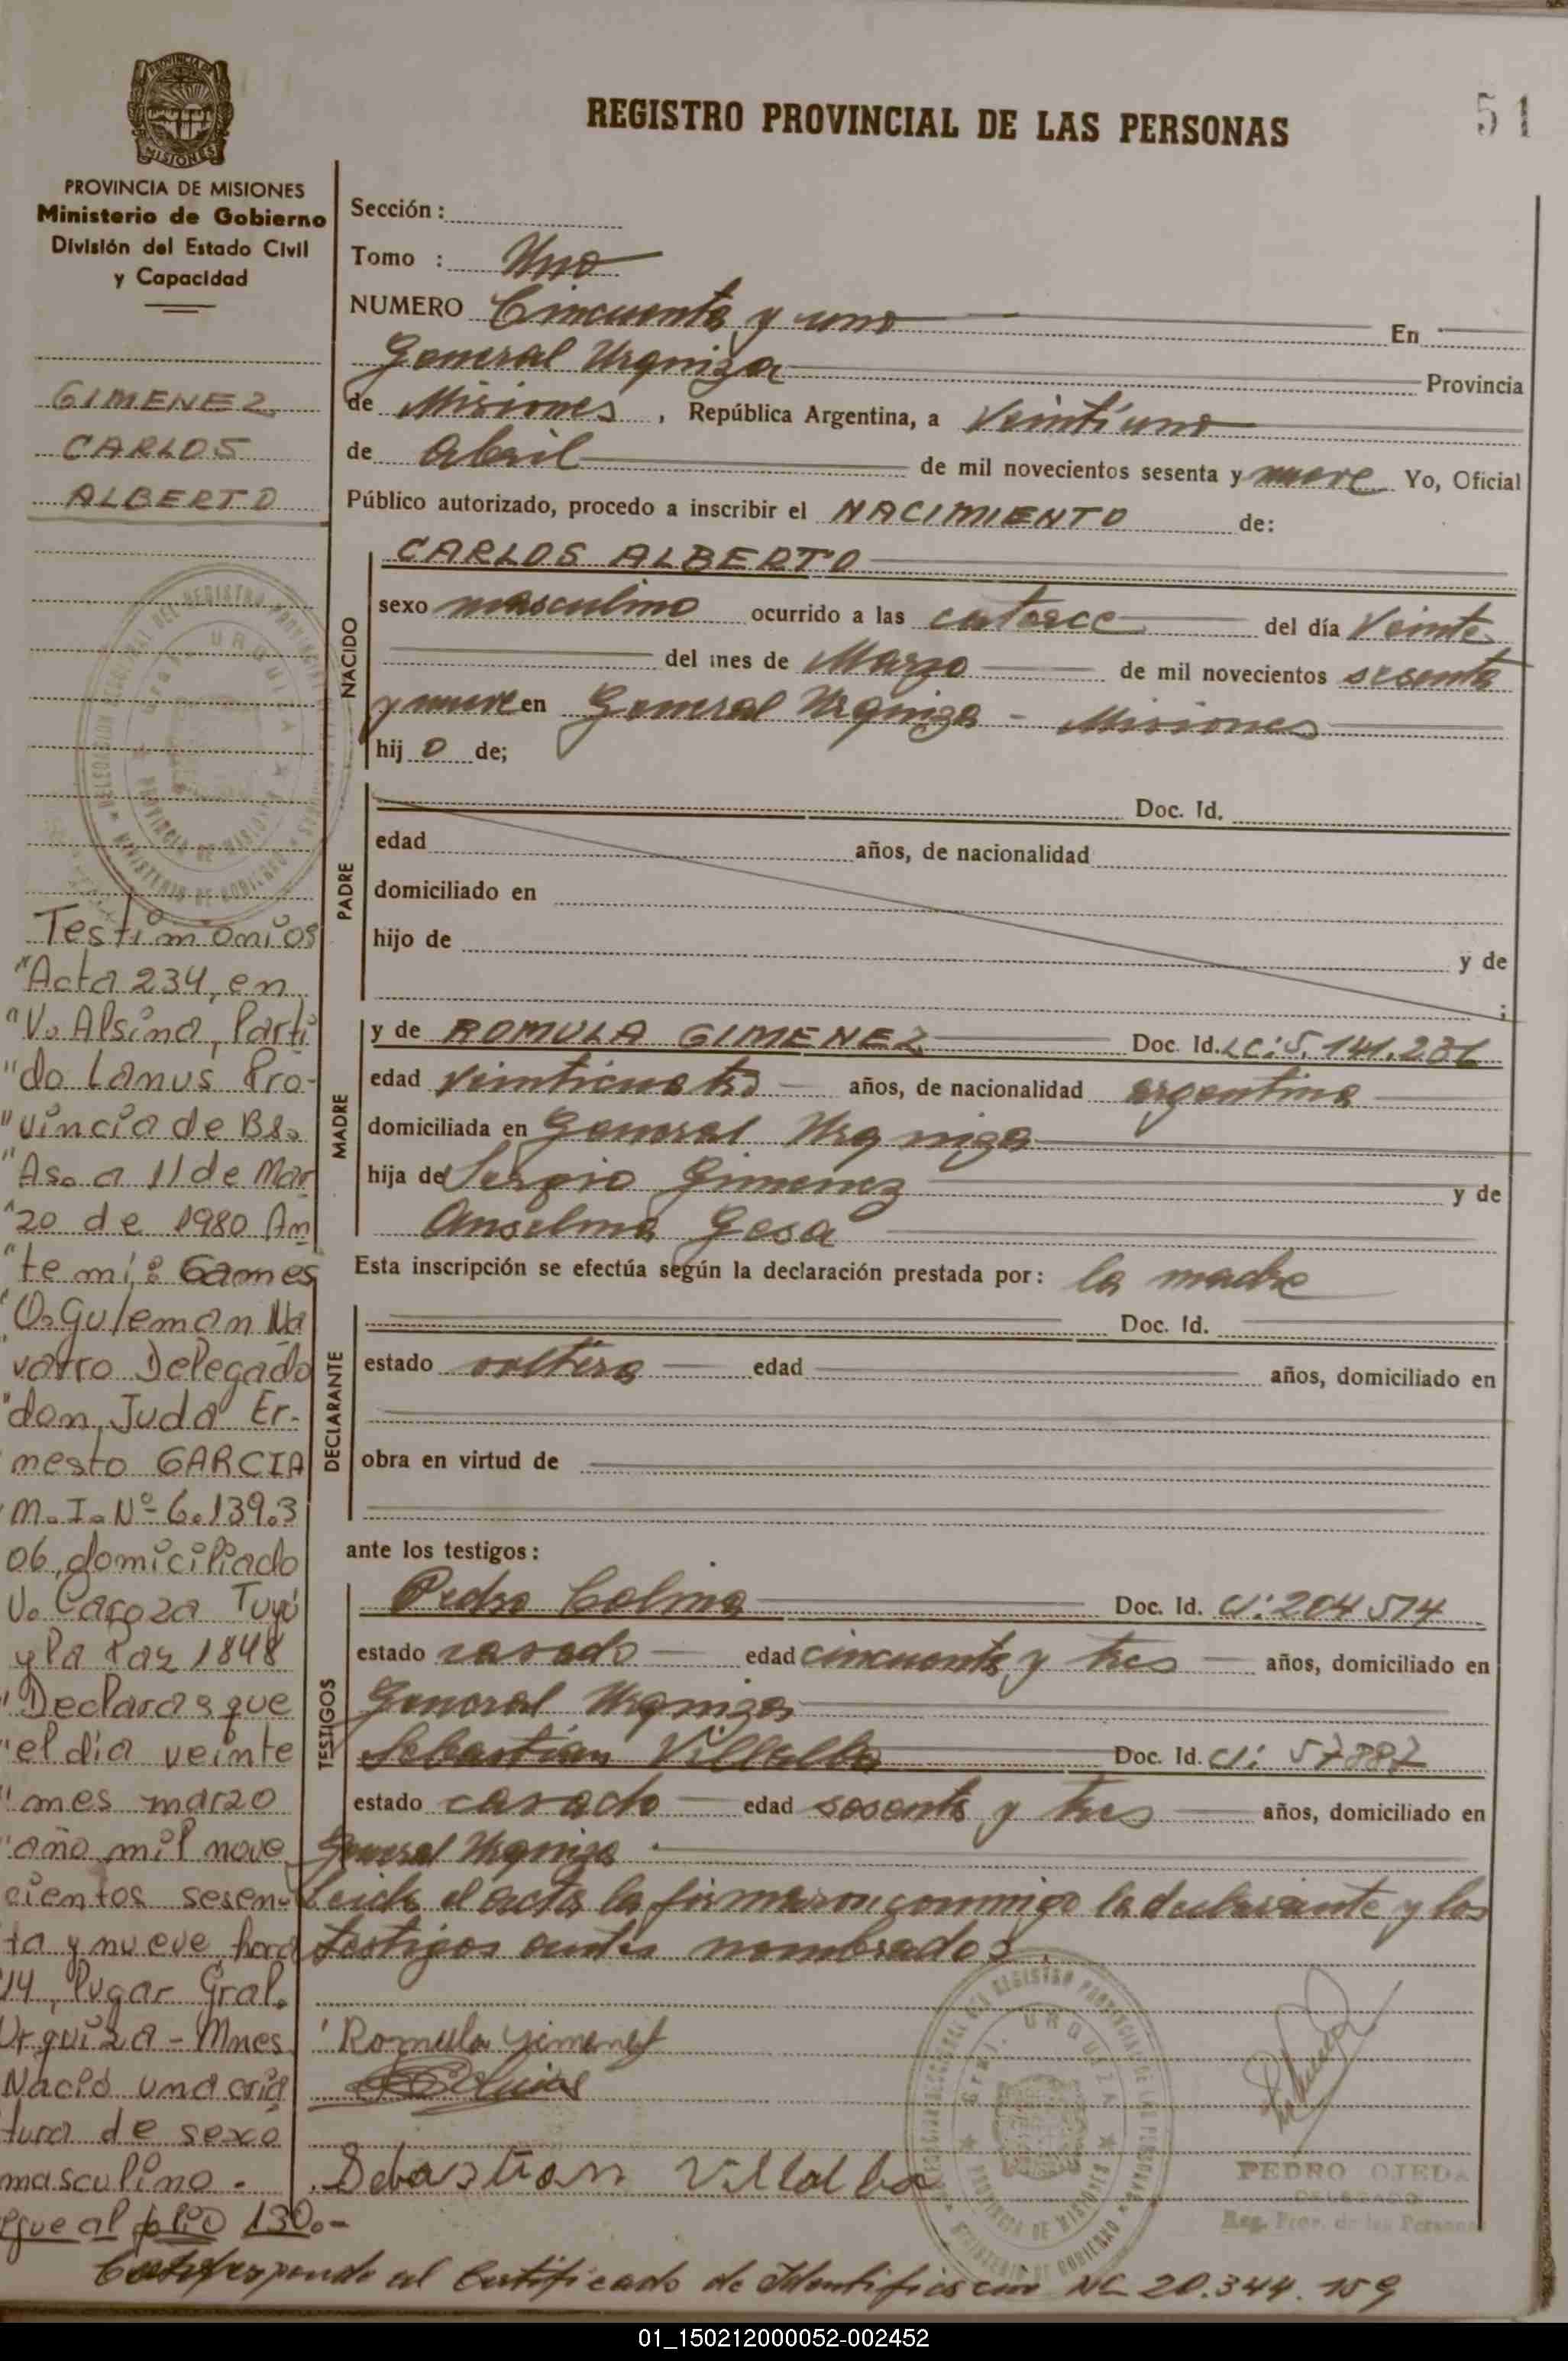 REGISTRO PROVINCIAL DE LAS PERSONAS
51
PROVINCIA DE MISIONES
Ministerio de Gobierno
División del Estado Civil
y Capacidad
GIMENEZ
CARLOS
ALBERTO
Testimonios
"Acta 234, en
"V. Alsina, Parti
"do Lanus Pro-
"vincia de Bs.
"As. a 11 de Mar
"zo de 1980 An
"te mi:
varro Delegado
"don, Juda Er-
nesto GARCIA
M. I. Nº 6.139.3
06, domiciliado
y la Paz 1848
"Declara: que
"el día veinte
"mes marzo
"año mil nove
cientos sesen-
ta y nueve, hora
14, lugar Gral.
Urquiza - Mnes.
Nació una cria
tura de sexo
masculino.
sigue al folio 130.-
Sección :
Tomo : Uno
NUMERO Cincuenta y uno En
General Urquiza Provincia
de Misiones , República Argentina, a Veintiuno
de Abril de mil novecientos sesenta y nueve Yo, Oficial
Público autorizado, procedo a inscribir el NACIMIENTO de:
NACIDO
CARLOS ALBERTO
sexo masculino ocurrido a las catorce del día Veinte
del mes de Marzo de mil novecientos sesenta
y nueve en General Urquiza - Misiones
hij o de;
PADRE
Doc. Id.
edad años, de nacionalidad
domiciliado en
hijo de y de
;
MADRE
y de ROMULA GIMENEZ Doc. Id. LC: 5.141.
edad veinticuatro años, de nacionalidad argentina
domiciliada en General Urquiza
hija de Sergio Gimenez y de
Anselma Gesa
Esta inscripción se efectúa según la declaración prestada por: la madre
DECLARANTE
Doc. Id.
estado soltera edad años, domiciliado en
obra en virtud de
ante los testigos:
TESTIGOS
Pedro Colina Doc. Id. CI: 204 514
estado casado edad cincuenta y tres años, domiciliado en
General Urquiza
Sebastián Villalba Doc. Id. CI: 57887
estado casado edad sesenta y tres años, domiciliado en
General Urquiza
Leida el acta la firmaron conmigo la declarante y los
testigos antes nombrados.
Romula Gimenez
Sebastian Villalba
PEDRO OJEDA
DELEGADO
Reg. Prov. de las Personas
Corresponde al Certificado de Identificacion Nº 20.344.159
01_150212000052-002452